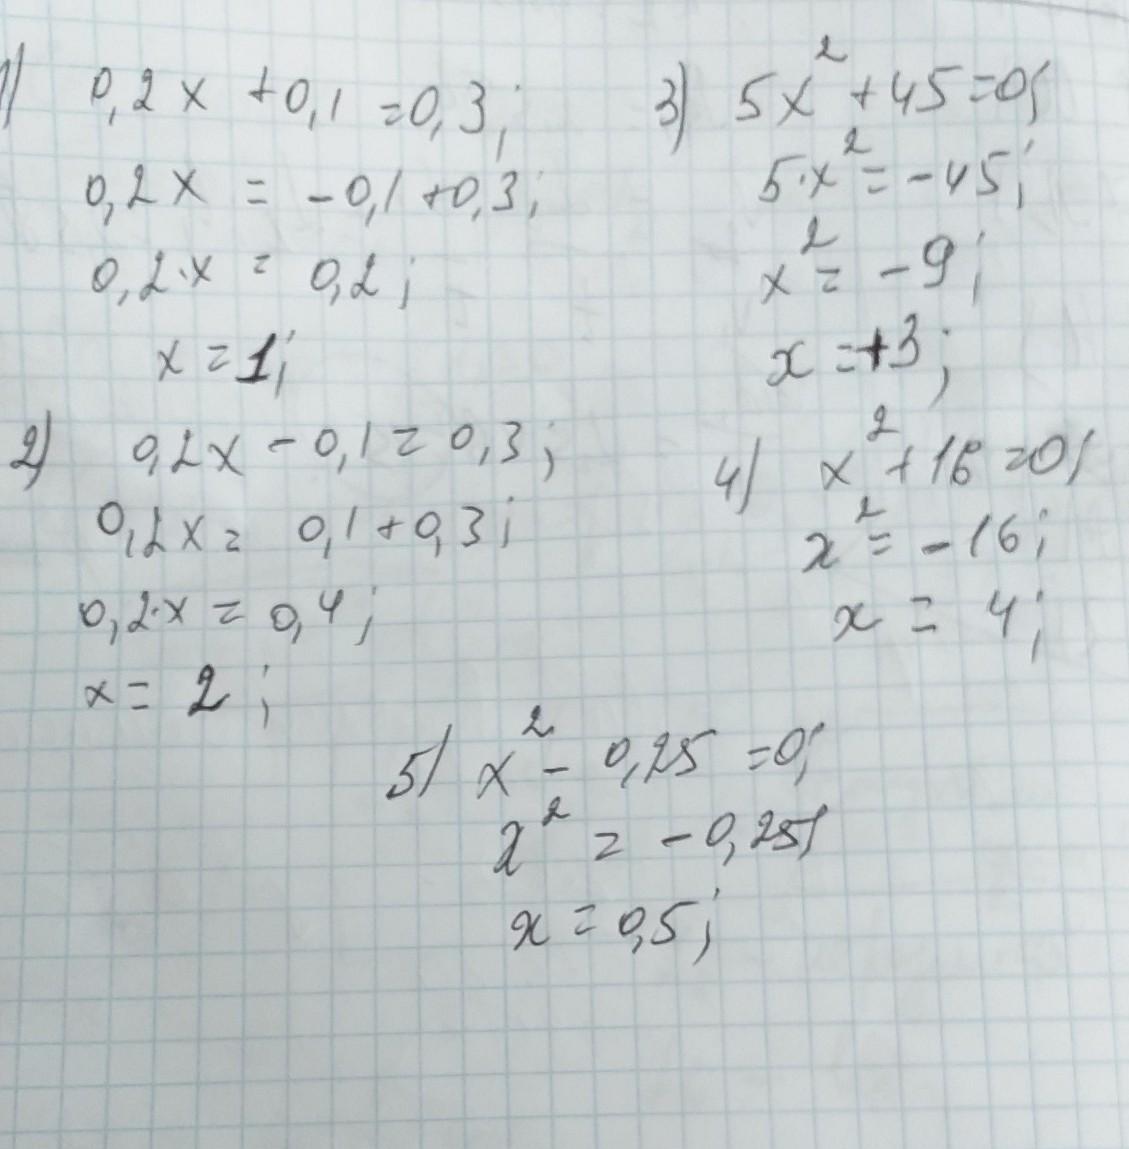 1) 0,2x + 0,1 = 0,3;
0,2x = -0,1 + 0,3;
0,2·x = 0,2;
x = 1;
2) 0,2x - 0,1 = 0,3;
0,2x = 0,1 + 0,3;
0,2·x = 0,4;
x = 2;
3) 5x² + 45 = 0;
5·x² = -45;
x² = -9;
x = +3;
4) x² + 16 = 0;
x² = -16;
x = 4;
5) x² - 0,25 = 0;
x² = -0,25;
x = 0,5;